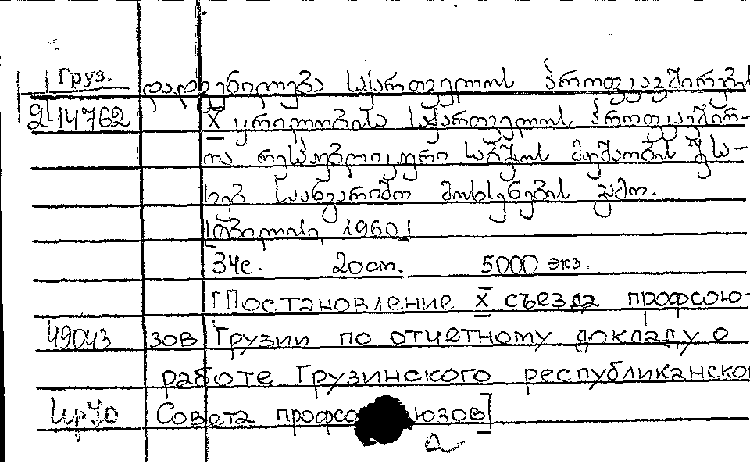 Груз. დადგენილება საქართველოს პროფკავშირების
2-14762 X ყრილობისა საქართველოს პროფკავშირ-
თა რესპუბლიკური საბჭოს მუშაობის შესა-
ხებ საანგარიშო მოხსენების გამო.
[თბილისი, 1960]
34с. 20ст. 5000 экз.
[Постановление X съезда профсою-
49043 зов Грузии по отчетному докладу о
работе Грузинского республиканско
Совета профсоюзов]